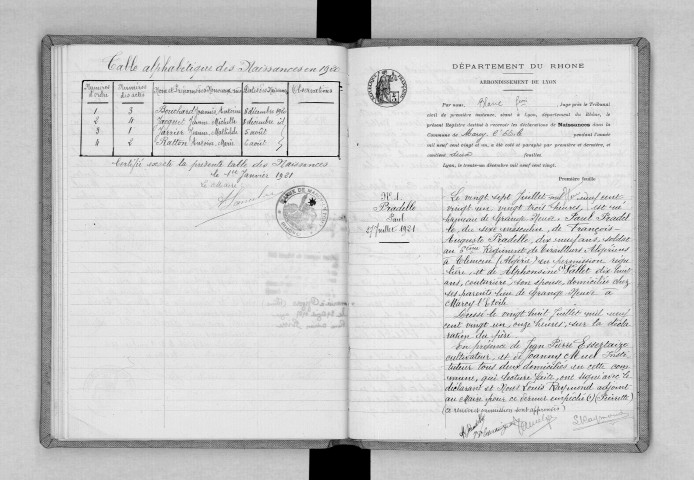 Table alphabétique des Naissances en 1920
Numéros d'ordre
Numéros des actes
Noms et Prénoms
Observations
1 3 Bouchard Jeannie Antoine 8 décembre 1920
2 4 Jacquet Jeanne Michelle décembre
3 1 Janier Jeanne Mathilde 5 août
4 2 Ratton Antoine Marie août
Certifié sincère la présente table des Naissances
le 1er Janvier 1921
Le Maire
DÉPARTEMENT DU RHONE
ARRONDISSEMENT DE LYON
Par nous, juge près le Tribunal
civil de première instance, séant à Lyon, département du Rhône, le
présent Registre destiné à recevoir les déclarations de Naissances dans la
Commune de Marcy l'Etoile pendant l'année
mil neuf cent vingt et un, a été coté et paraphé par première et dernière, et
contient feuilles
Lyon, le trente-un décembre mil neuf cent vingt.
Première feuille
No 1
Pradelle
Paul
27 Juillet 1921
Le vingt sept Juillet mil neuf cent
vingt un vingt trois heures, est né
hameau de Grange Neuve, Paul Pradel
le, du sexe masculin, de François
Auguste Pradelle, dix neuf ans, soldat
au Régiment de Tirailleurs Algériens
à Tlemcen (Algérie) en permission régu
lière, et de Alphonsine Pallet dix huit
ans, couturière, son épouse, domiciliée chez
ses parents, de Grange Neuve à
Marcy l'Etoile
Dressé le vingt huit Juillet mil neuf
cent vingt un onze heures, sur la décla
ration du père
En présence de Jean Pierre Essertaize
cultivateur, et de Joanny Muel Insti
tuteur tous deux domiciliés en cette com
mune, qui, lecture faite, ont signé avec le
déclarant et Nous Louis Raymond adjoint
au Maire pour ce dernier empêché
L Raymond